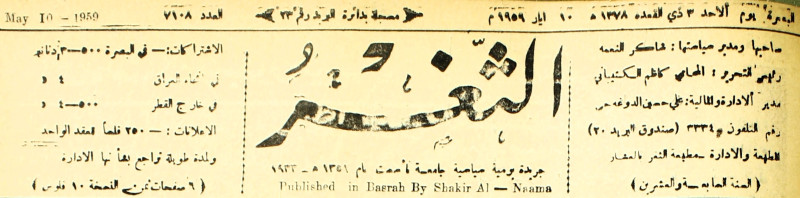 البصرة يوم الاحد ٣ ذي القعده ١٣٧٨ هـ ١٠ ايار ١٩٥٩ م
مسجلة بدائرة البريد برقم ٢٣
العدد ٧١٠٨
May 10 - 1959
صاحبها ومدير سياستها: شاكر النعمه
رئيس التحرير: المحامي كاظم الكشيباني
مدير الادارة والمالية: علي حسين الدوغه جي
رقم التلفون ٣٣٣٤ (صندوق البريد ٢٠)
المطبعة والادارة - مطبعة الثغر بالعشار
(السنة السابعة والعشرين)
الثغر
جريدة يومية سياسية جامعة تأسست عام ١٣٥١ هـ ١٩٣٣
Published in Basrah By Shakir Al - Naama
الاشتراكات: - في البصرة ٥٠٠-٣ دنانير
في انحاء العراق ٤ د
في خارج القطر ٥٠٠-٤ د
الاعلانات: - ٢٥٠ فلساً للعقد الواحد
ولمدة طويلة تراجع بشأنها الادارة
(٦ صفحات ثمن النسخة ١٠ فلوس)